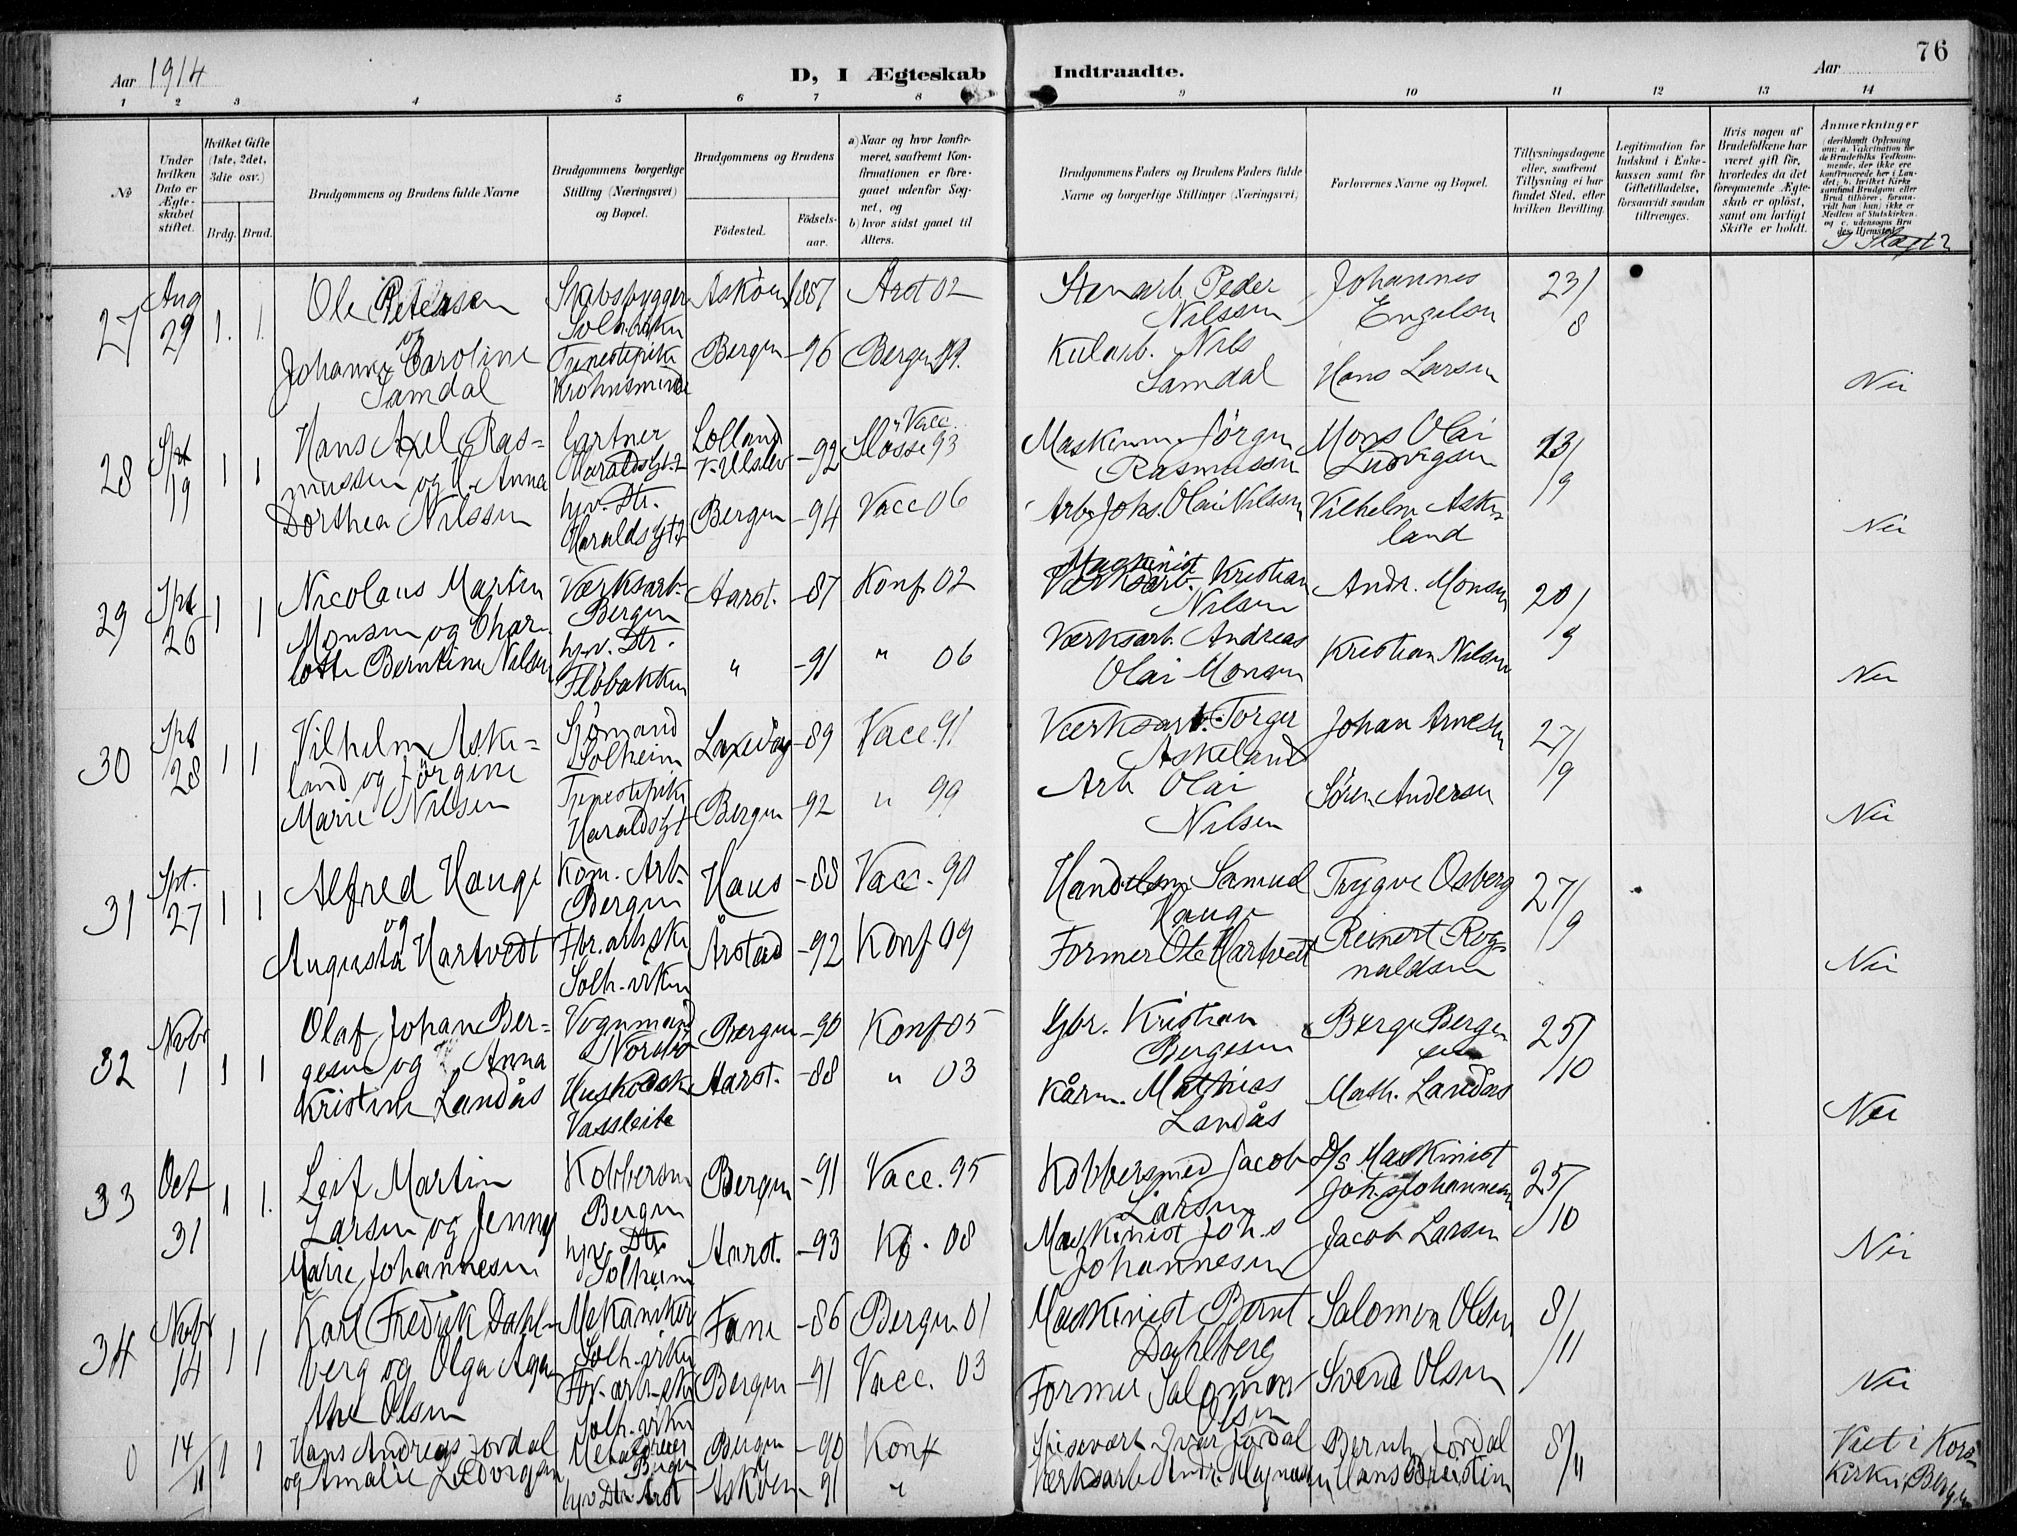 76
Aar 1914
D, I Ægteskab Indtraadte.
Aar
1 2 3 4 5 6 7 8 9 10 11 12 13 14
№
Under hvilken Dato er Ægteskabet stiftet.
Hvilket Gifte (1ste, 2det, 3die osv.)
Brdg. Brud.
Brudgommens og Brudens fulde Navne
Brudgommens borgerlige Stilling (Næringsvei) og Bopæl.
Brudgommens og Brudens
Fødested. Fødsels-aar.
a) Naar og hvor konfirmeret, saafremt Konfirmationen er foregaaet udenfor Sognet, og
b) hvor sidst gaaet til Alters.
Brudgommens Faders og Brudens Faders fulde Navne og borgerlige Stillinger (Næringsvei)
Forlovernes Navne og Bopæl.
Tillysningsdagene eller, saafremt Tillysning ei har fundet Sted, efter hvilken Bevilling.
Legitimation for Indskud i Enkekassen samt for Giftetilladelse, forsaavidt saadan tiltrænges.
Hvis nogen af Brudefolkene har været gift før, hvorledes da det foregaaende Ægteskab er opløst, samt om lovligt Skifte er holdt.
Anmerkninger
(deriblandt Oplysning om: a. Vaksination for de Brudefolks Vedkommende, der ikke ere konfirmerede her i Landet; b. hvilket Kirkesamfund Brudgom eller Brud tilhører, forsaavidt han (hun) ikke er Medlem af Statskirken, og c. udensogns Brudes Hjemsted.)
I Slægt?
27 Aug 29 1. 1. Ole Petersen Skibsbygger Askøen 1887 Arst 02 Stenarb. Peder Nilssen Johannes Engelsen 23/8
og Johanna Caroline Samdal Tjenestepike Krohnsminde Bergen -96 Bergen Kularb. Nils Samdal Hans Larsen Nei
28 Spt 19 1 1 Hans Axel Rasmussen og Anna Dorthea Nilssen
Gartner Haraldsgt. 2 Lolland -92 Vacc. 93 Maskinm. Jörgen Rasmussen Mons Olai Ludvigsen 13/9
hjv. Dtr. Haraldsgt. 2 Bergen -94 Vacc 06 Arb. Johs. Olai Nilssen Vilhelm Askeland Nei
29 Spt 26 1 1 Nicolaus Martin Monsen og Charlotte Berntine Nilsen
Værksarb. Bergen Aarst. -87 Konf. 02 Maskinist Kristian Nilsen Andr. Monsen 20/9
hjv. Dtr. Fløbakken " -91 " 06 Værksarb. Andreas Olai Monsen Kristian Nilsen Nei
30 Spt 28 1 1 Vilhelm Askeland og Jörgine Marie Nilsen
Sjömand Solheim Laxevåg -89 Vacc. 91 Værksarb. Torger Askeland Johan Arnesen 27/9
Tjenestepike Haraldsgt Bergen -92 " 99 Arb Olai Nilsen Sören Andersen Nei
31 Spt. 27 1 1 Alfred Hauge Kom. Arb. Bergen Haus -88 Vacc. 90 Handelsm. Samuel Hauge Trygve Osberg 27/9
og Augusta Hartvedt Fbr. arbske Solh.viken Årstad -92 Konf. 09 Former Ole Hartvedt Reinert Rognaldsen Nei
32 Novbr 1 1 1 Olaf Johan Bergesen og Anna Kristine Landås
Vognmand Bergen -90 Konf 05 Gbr. Kristian Bergesen Berge Bergesen 25/10
Vassleite Aarst. -88 " 03 Kårm. Mathias Landås Math. Landås Nei
33 Oct 31 1 1. Leif Martin Larsen og Jenny Marie Johannesen
Kobbersm Bergen Bergen -91 Vacc. 95 Kobbersmed Jacob Larsen D/s Maskinist Johs Johannesen 25/10
hjv. Dtr. Solheim Aarst. -93 Kf. 08 Maskinist Johs Johannesen Jacob Larsen Nei
34 Novbr 14 1 1 Karl Fredrik Dahlberg og Olga Agathe Olsen
Mekaniker Solh.viken Fane -86 Bergen 01 Maskinist Bernt Dahlberg Salomon Olsen 8/11
Fbr. arb-ske Solh.viken Bergen -91 Vacc. 03 Former Salomon Olsen Svend Olsen Nei
0 14/11 1 1 Hans Andreas Jordal Bergen Bergen -90 Konf Spisevært Ivar Jordal Bernt Jordal 8/11 Viet i Korskirken, Bergen
og Amalie Ludvigsen hjv Dtr Arst Askøen -91 " Værksarb Andr. Magnussen Hans